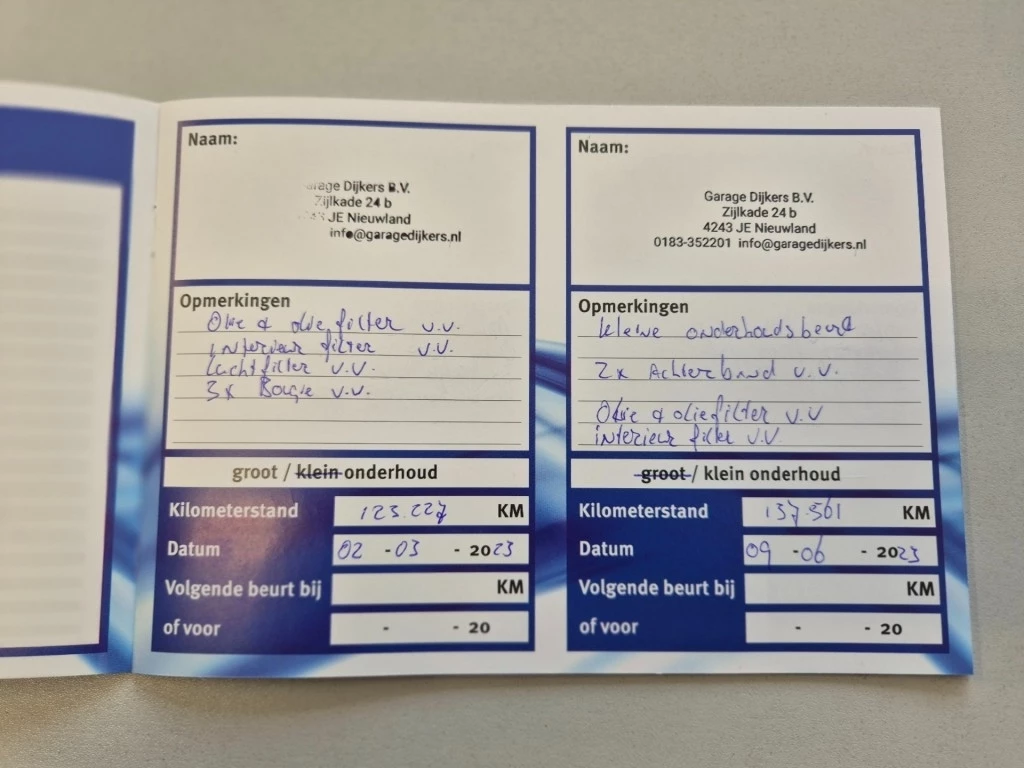 Naam:
arage Dijkers B.V.
Zijlkade 24 b
43 JE Nieuwland
info@garagedijkers.nl
Opmerkingen
Olie & oliefilter v.v.
interieur filter v.v.
Luchtfilter v.v.
3x Bougie v.v.
groot / klein onderhoud
Kilometerstand 123.227 KM
Datum 02 - 03 - 2023
Volgende beurt bij KM
of voor - - 20
Naam:
Garage Dijkers B.V.
Zijlkade 24 b
4243 JE Nieuwland
0183-352201 info@garagedijkers.nl
Opmerkingen
kleine onderhoudsbeurt
2x Achterband v.v.
Olie & oliefilter v.v
interieur filter v.v
groot / klein onderhoud
Kilometerstand 137.561 KM
Datum 09 - 06 - 2023
Volgende beurt bij KM
of voor - - 20